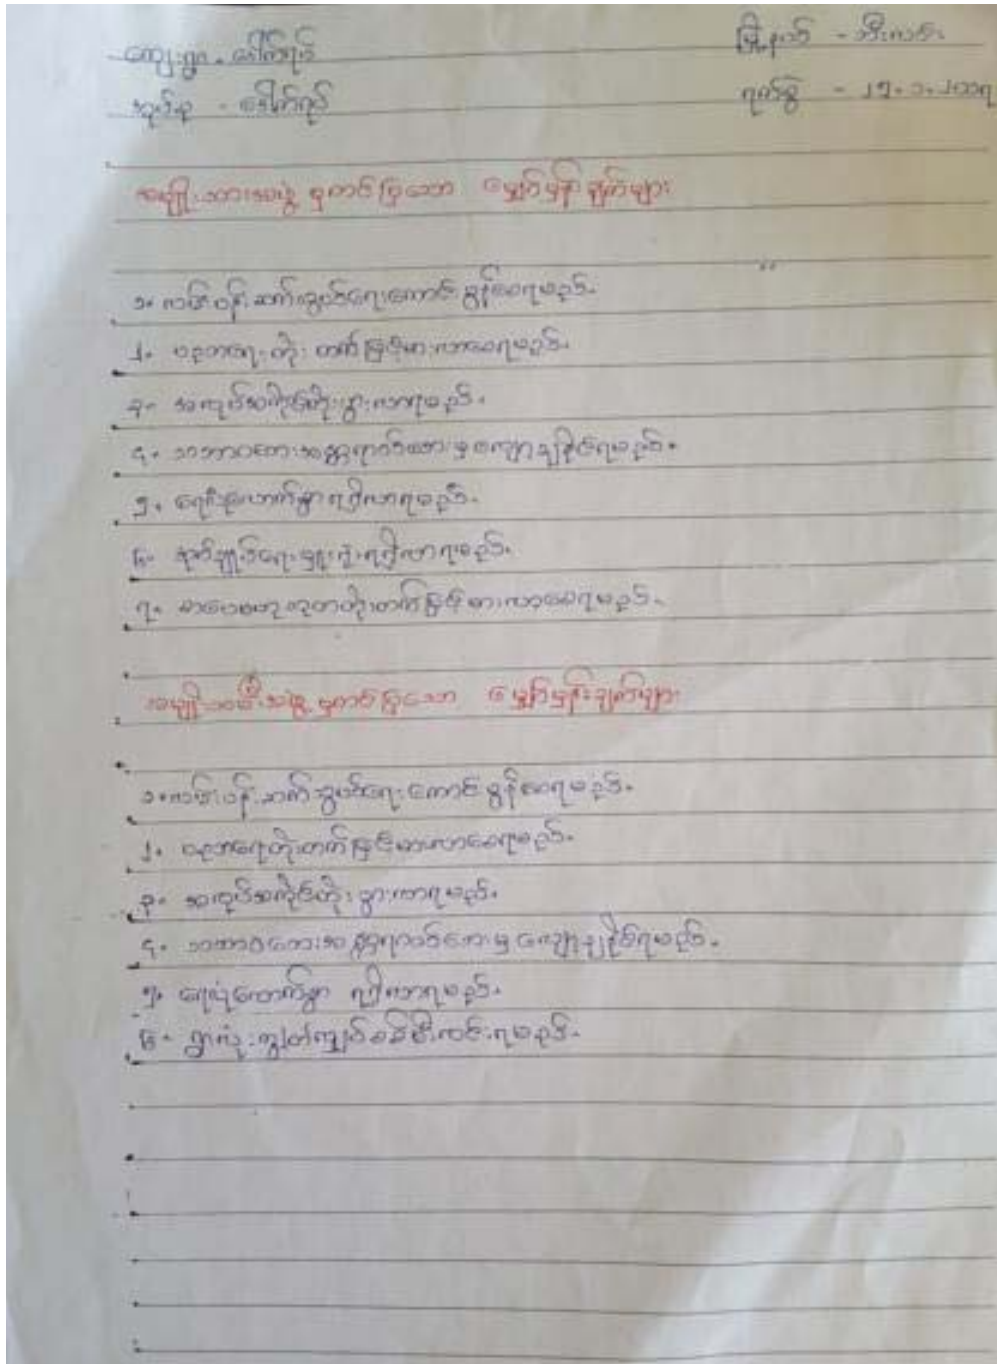 ကျေးရွာ - ခေါက်ရပ် မြို့နယ် - သီးလင်း
အုပ်စု - ခေါက်ရပ် ရက်စွဲ - ၂၅.၁.၂၀၁၇
အမျိုးသားအဖွဲ့ မှတင်ပြသော မျှော်မှန်းချက်များ
၁။ လမ်းပန်းဆက်သွယ်ရေးကောင်းမွန်စေရမည်။
၂။ ပညာရေးတိုးတက်မြင့်မားလာစေရမည်။
၃။ အလုပ်အကိုင်တိုးပွားလာရမည်။
၄။ သဘာဝဘေးအန္တရာယ်ဘေးမှ လျော့ချနိုင်ရမည်။
၅။ ရေလုံလောက်စွာရရှိလာရမည်။
၆။ စိုက်ပျိုးရေး ရရှိလာရမည်။
၇။ တိုးတက်မြင့်မားလာစေရမည်။
အမျိုးသမီးအဖွဲ့ မှတင်ပြသော မျှော်မှန်းချက်များ
၁။ လမ်းပန်းဆက်သွယ်ရေးကောင်းမွန်စေရမည်။
၂။ ပညာရေးတိုးတက်မြင့်မားလာစေရမည်။
၃။ အလုပ်အကိုင်တိုးပွားလာရမည်။
၄။ သဘာဝဘေးအန္တရာယ်ဘေးမှ လျော့ချနိုင်ရမည်။
၅။ ရေလုံလောက်စွာ ရရှိလာရမည်။
၆။ ရွာလုံးကျွတ်လျှပ်စစ်မီးလင်းရမည်။